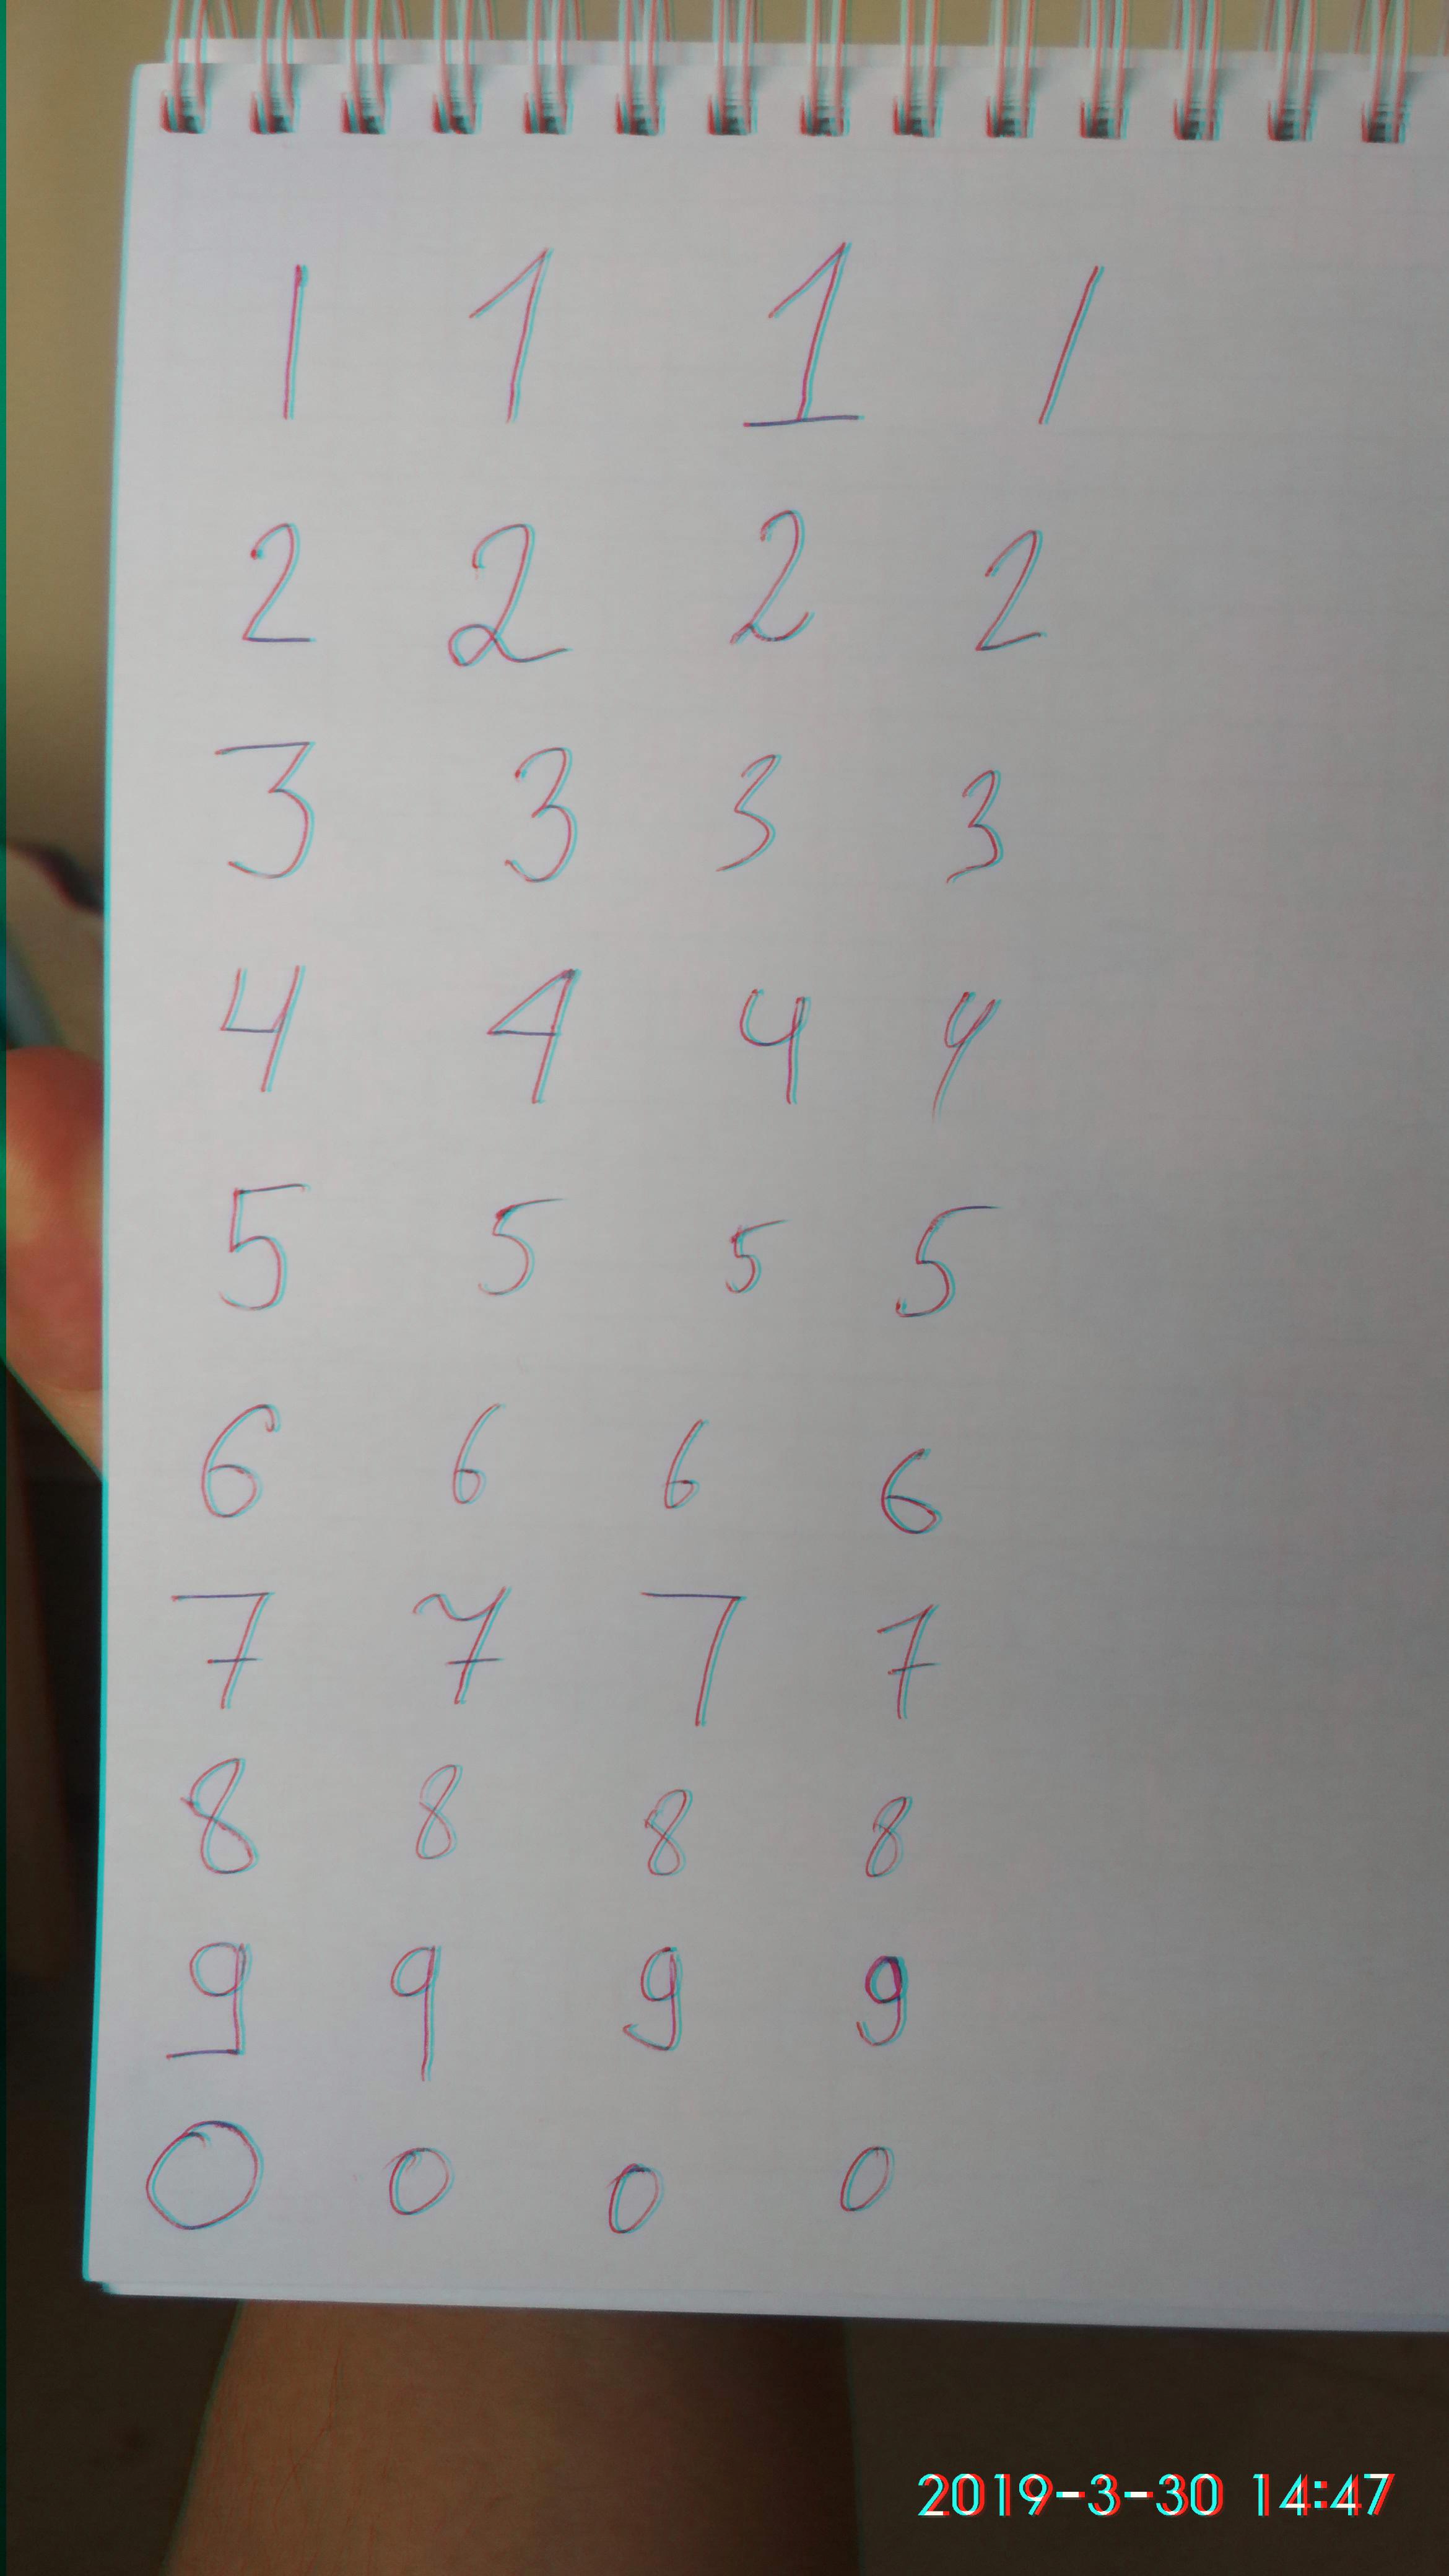 1 1 1 1
2 2 2 2
3 3 3 3
4 4 4 4
5 5 5 5
6 6 6 6
7 7 7 7
8 8 8 8
9 9 9 9
0 0 0 0
2019-3-30 14:47